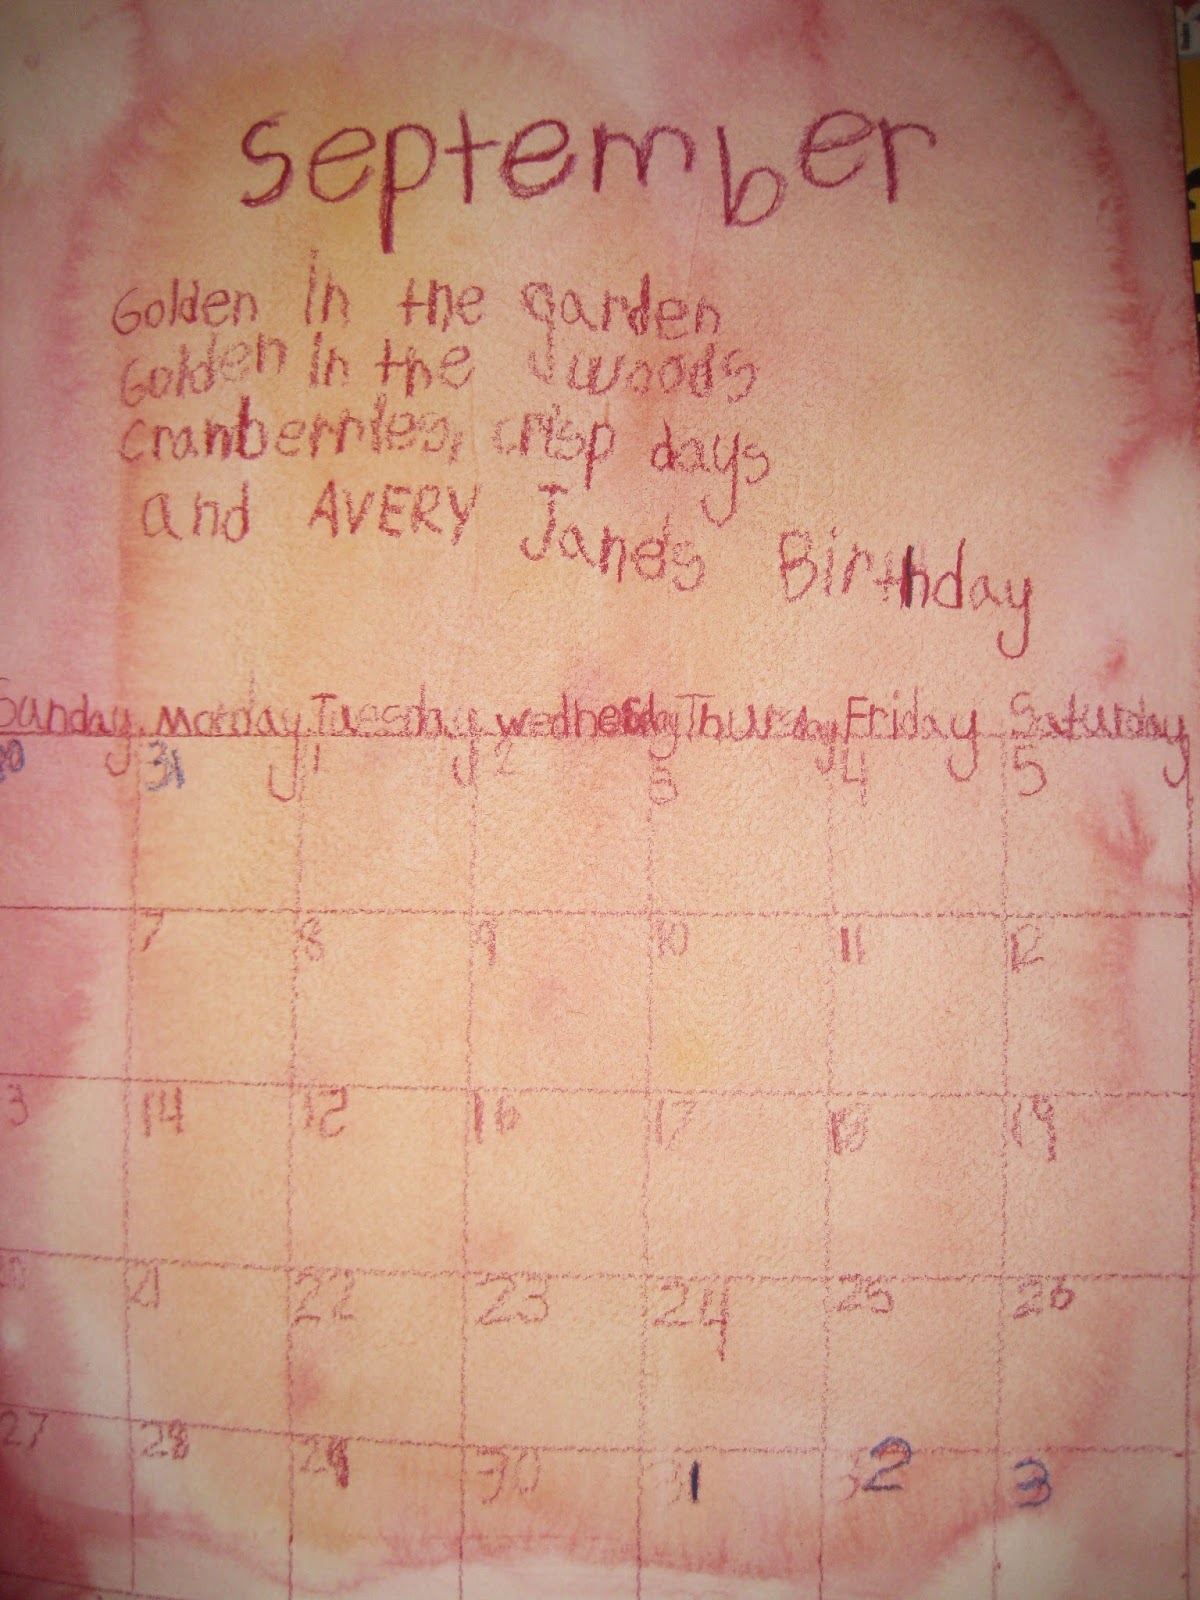 September
Golden in the garden
Golden in the woods
cranberries, crisp days
and AVERY Jane's Birthday
Sunday Monday Tuesday wednesday Thursday Friday Saturday
30 31 1 2 3 4 5
7 8 9 10 11 12
3 14 12 16 17 18 19
20 21 22 23 24 25 26
27 28 29 30 1 2 3